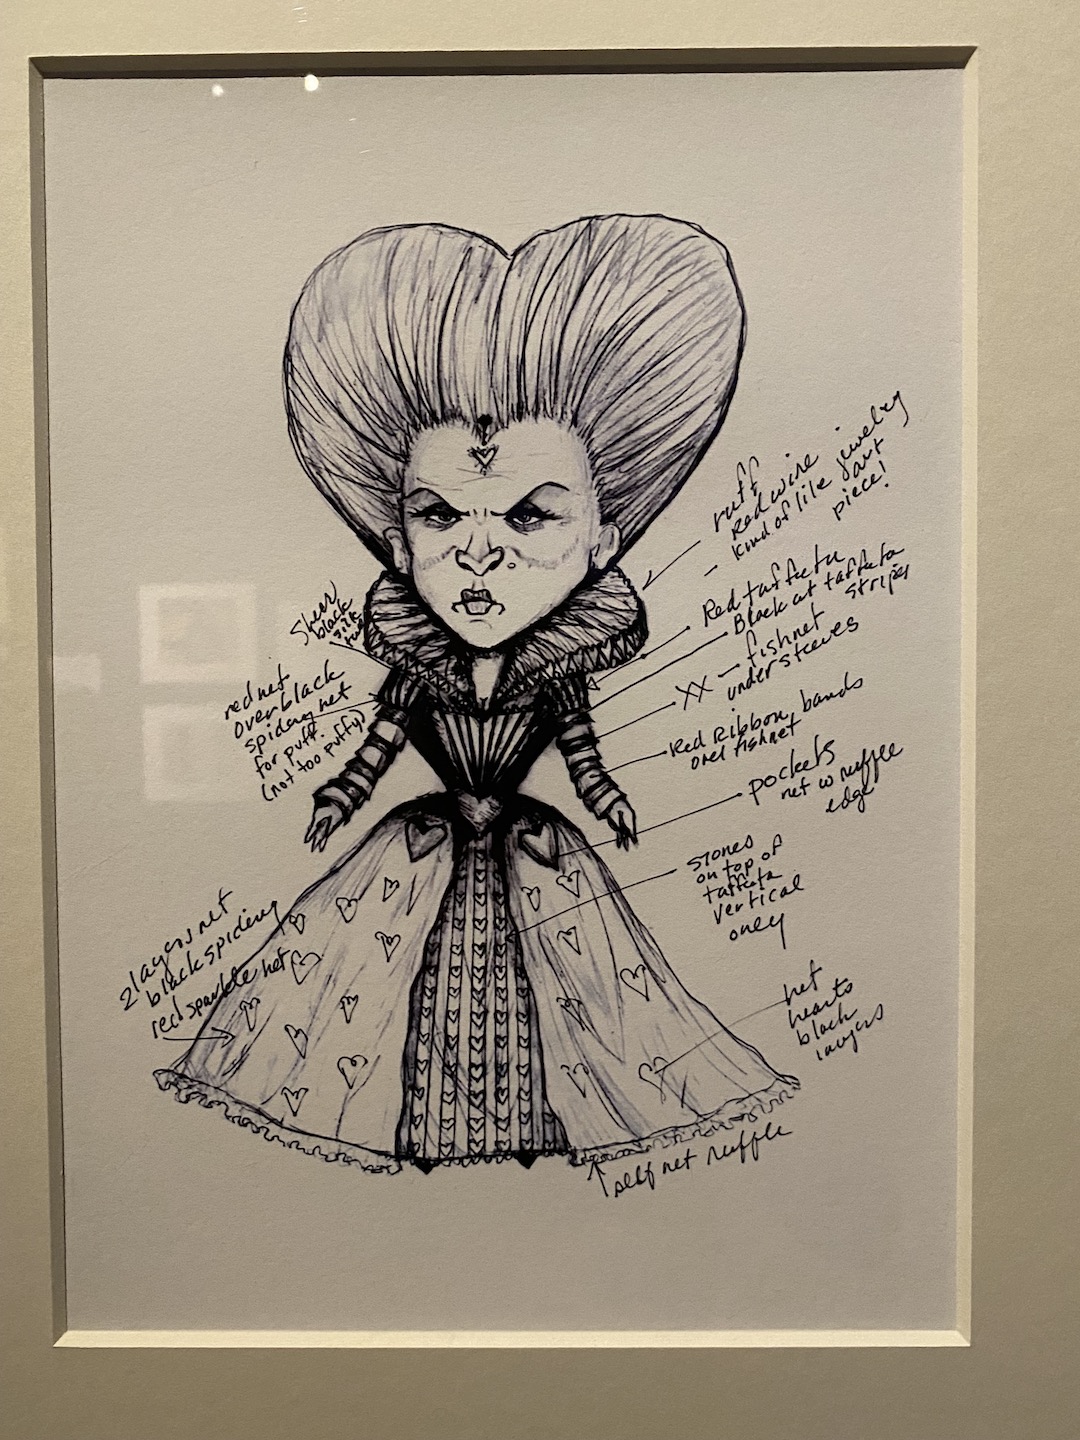 ruff
Red wire jewelry
kind of like art
piece!
Red taffeta
Black at taffeta
stripes
XX — fishnet
under sleeves
Red Ribbon bands
over fishnet
pockets
net w ruffle
edge
stones
on top of
taffeta
vertical
only
net
hearts
black
layers
self net ruffle
Sheer
black
silk
red net
over black
spidery net
for puff.
(not too puffy)
2 layers net
black spidery
red sparkle net